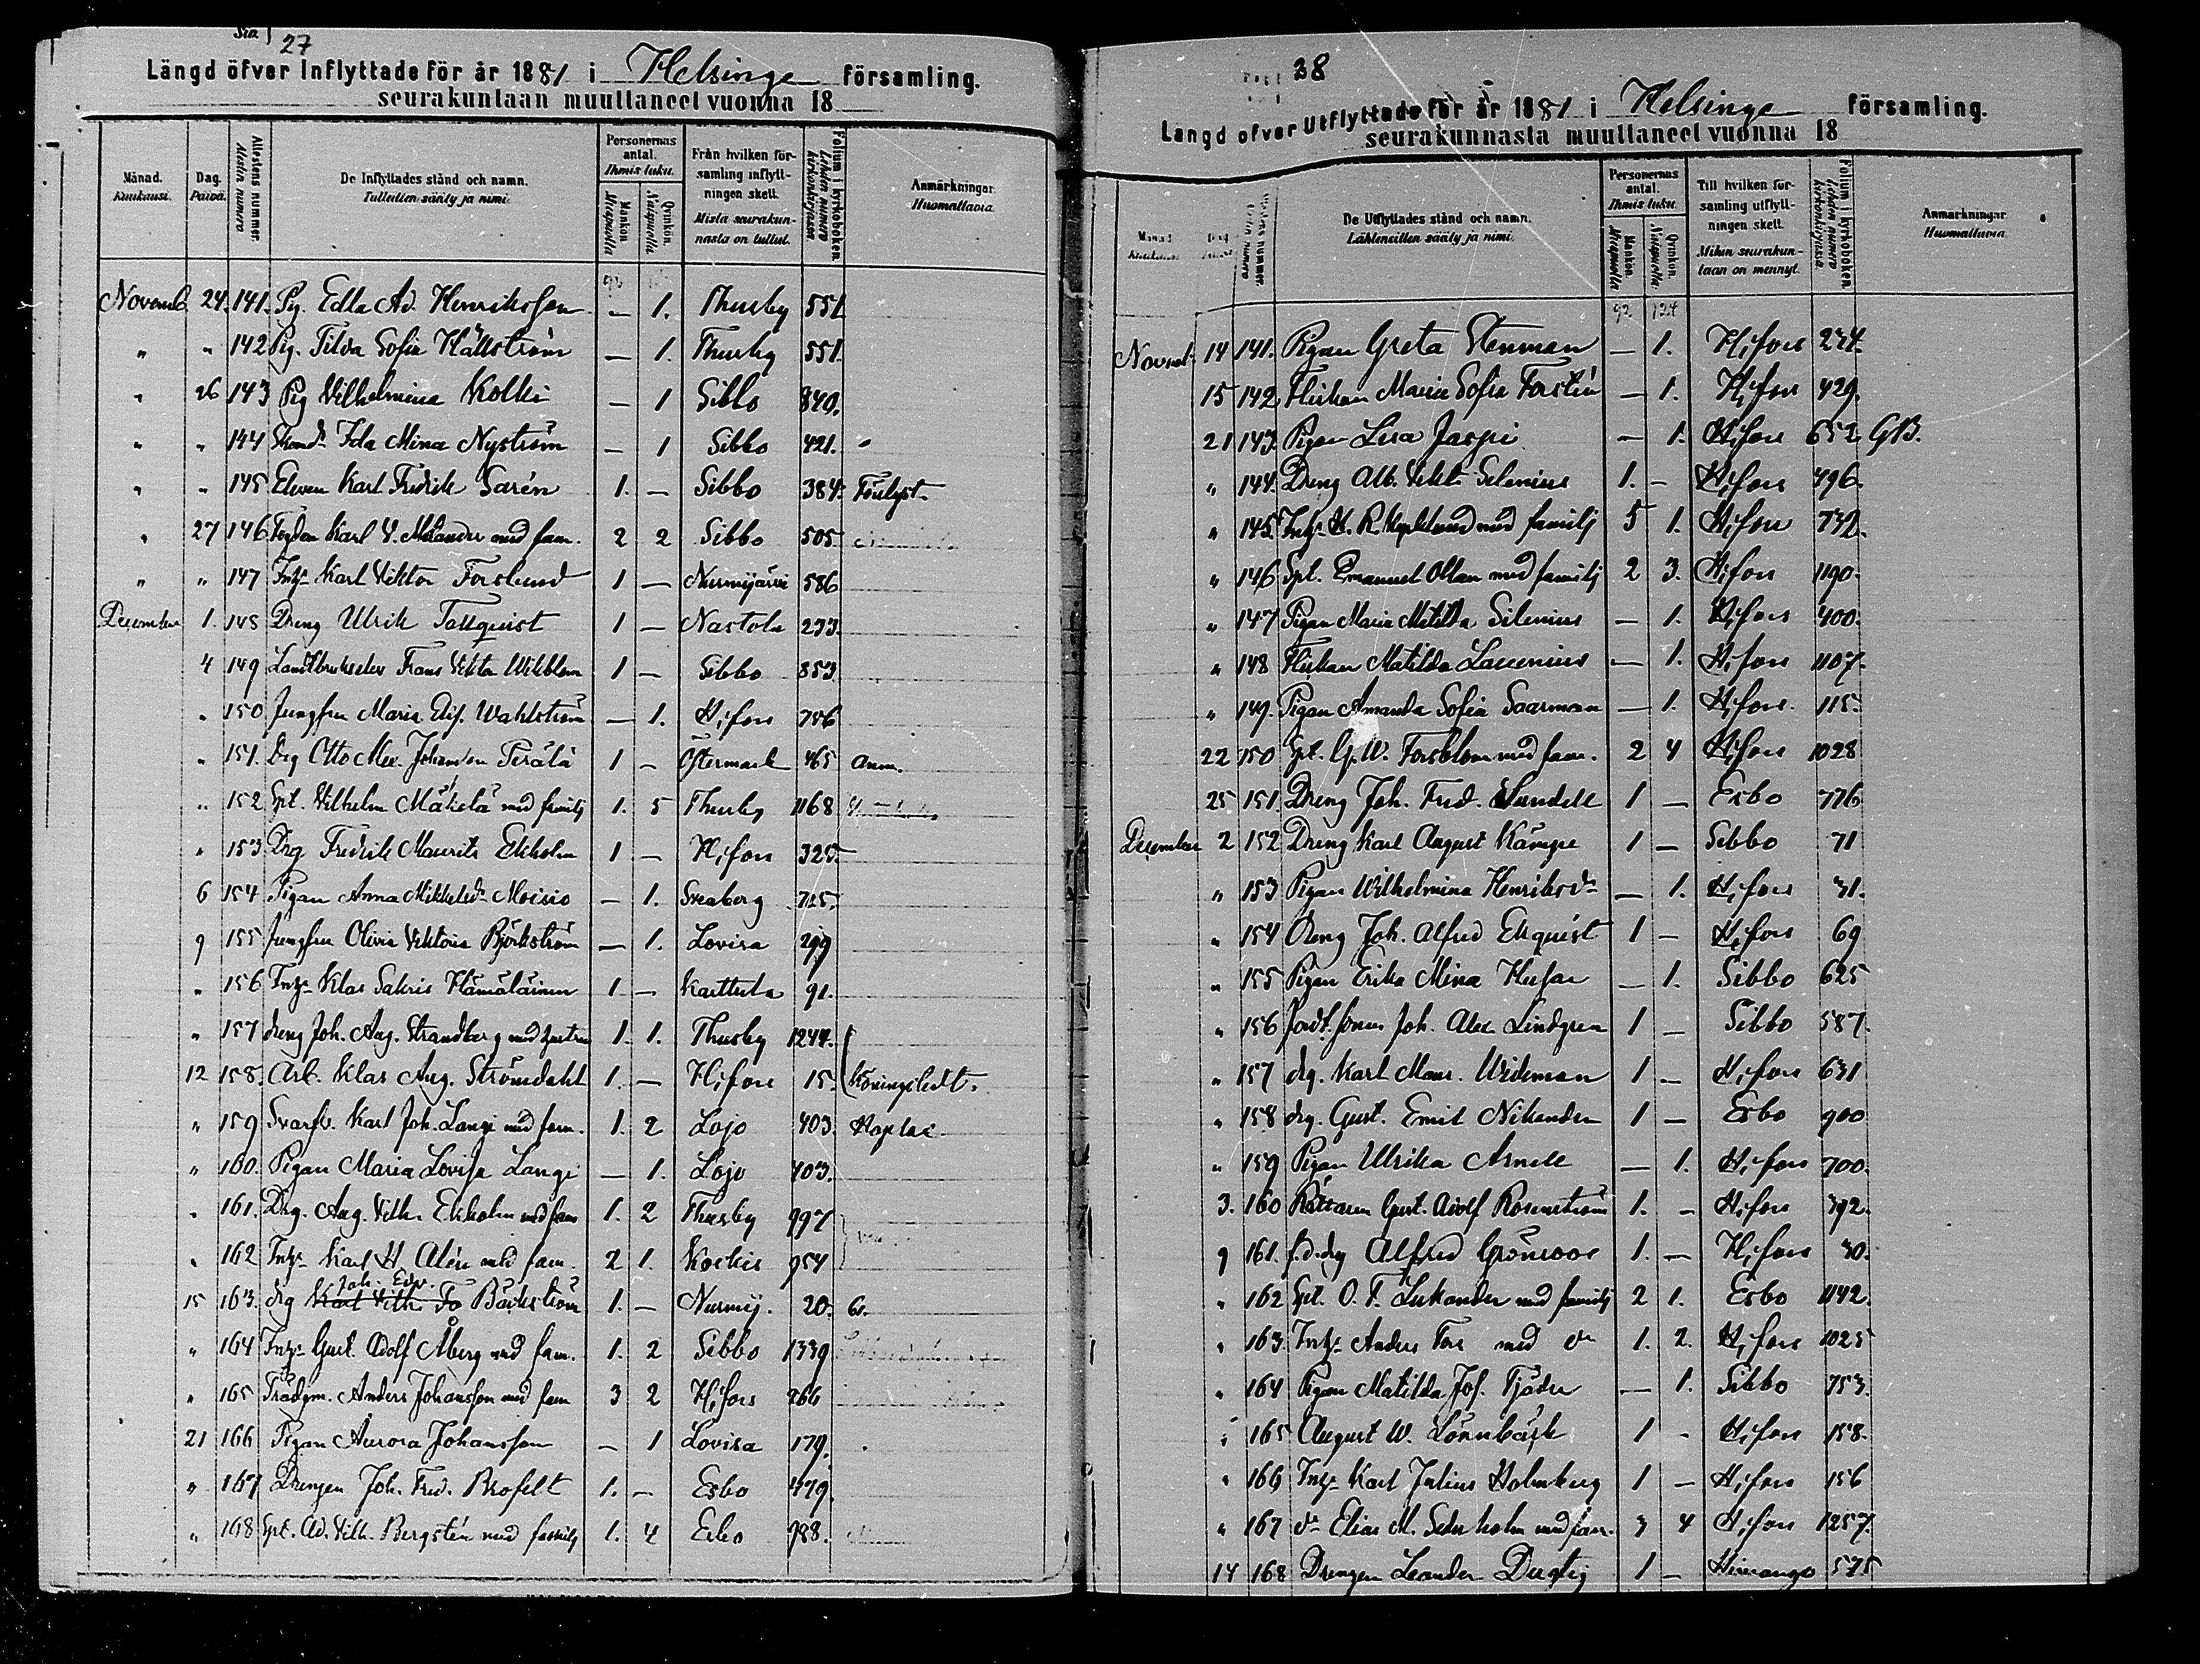 27
Längd öfver Inflyttade för år 1881 i Helsinge församling.
seurakuntaan muuttaneet vuonna 18
Månad. Kuukausi. Dag. Päivä. Attestens nummer. De Inflyttades stånd och namn. Tulleitten sääty ja nimi. Personernas antal. Ihmis luku. Mankön. Miespuolia Qvinkön. Naispuolia Från hvilken församling inflyttningen skett. Mistä seurakunnasta on tullut. Folium i kyrkoboken. Anmärkningar. Huomattavia.
Novemb. 24. 141. Pig. Edla Ad. Henriksson — 1. Thusby 551
" " 142 Pig. Tilda Sofia Hällström — 1. Thusby 551.
" 26 143 Pig Vilhelmina Kolki — 1 Sibbo 840.
" " 144 Ida Mina Nyström — 1 Sibbo 421.
" " 145 Eleven Karl Fridrik Sarén 1. — Sibbo 384.
" 27 146 Karl V. Melander med fam. 2 2 Sibbo 505
" " 147 Inhs Karl Viktor Forslund 1 — Nurmijärvi 586
December 1. 148 Dreng Ulrik Tallquist 1 — Nastola 233.
4 149 Landtbrukselev Frans Viktor Wikblom 1 — Sibbo 853
" 150 Jungfru Maria Elis. Wahlström — 1. H,fors 756
" 151. Drg Otto Alex. Johansson Perälä 1 — Östermark 465 Anm.
" 152 Spt. Vilhelm Mäkelä med familj 1. 5 Thusby 1168
" 153 Drg Fredrik Maurits Ekholm 1 — H,fors 325
6 154 Pigan Anna Mikkelsdr Moisio — 1. Sveaborg 725.
9 155 Jungfru Olivia Viktoria Björkström — 1. Lovisa 299
" 156 Inhs Klas Sakris Hämäläinen 1. — Karttula 91.
" 157 dreng Joh. Aug. Strandberg med hustru 1. 1. Thusby 1244.
12 158. Arb. Klas Aug. Strömdahl 1. — H,fors 15.
" 159 Svarfv. Karl Joh. Lange med fam. 1. 2 Lojo 403.
" 160. Pigan Maria Lovisa Lange — 1. Lojo 403.
" 161. Drg. Aug. Vilh. Ekholm med fam 1. 2 Thusby 997
" 162 Inhs Karl H. Alén med fam. 2 1. Kockis 954
Joh. Edv.
15 163. drg Karl Vilh. Fo Bäckström 1. — Nurmij. 20.
" 164 Inhs Gust. Adolf Åberg med fam. 1. 2 Sibbo 1339
" 165 Trädgm. Anders Johansson med fam 3 2 H,fors 266
21 166 Pigan Aurora Johansson — 1 Lovisa 179.
" 167 Drengen Joh. Fred. Brofelt 1. — Esbo 479.
" 168 Spt. Ad. Vilh. Bergstén med familj 1. 4 Esbo 788.
28
Längd öfver Utflyttade för år 1881 i Helsinge församling.
seurakunnasta muuttaneet vuonna 18
De Utflyttades stånd och namn. Lähteneitten sääty ja nimi. Personernas antal. Ihmis luku. Mankön. Miespuolia Qvinkön. Naispuolia. Till hvilken församling utflyttningen skett. Mihin seurakuntaan on mennyt. Folium i kyrkoboken. Anmärkningar Huomattavia.
92 124
Novemb. 14 141. Pigan Greta Stenman — 1. H,fors 234.
15 142 Flickan Maria Sofia Forstén — 1. H,fors 429.
21 143. Pigan Lisa Jaspi — 1. H,fors 652 GB.
" 144. Dreng Alb. Vikt. Silenius 1. — H,fors 496.
" 145. med familj 5 1. H,fors 732.
" 146 Spt. Emanuel Ollan med familj 2 3. H,fors 1190.
" 147 Pigan Maria Matilda Silenius — 1. H,fors 400.
" 148 Flickan Matilda Laurenius — 1. H,fors 1107.
" 149. Pigan Amanda Sofia Saarman — 1. H,fors. 115.
22 150 Spt. G.W. Forsblom med fam. 2 4 H,fors 1028
25 151. Dreng Joh. Fred. Sundell 1 — Esbo 776
December 2 152 Dreng Karl August Kämpe 1 — Sibbo 71
" 153 Pigan Wilhelmina Henriksdr — 1. H,fors 31.
" 154 Dreng Joh. Alfred Ekquist 1 — H,fors 69
" 155 Pigan Erika Mina Husar — 1. Sibbo 625
" 156 Joh. Alex. Lindgren 1 — Sibbo 587.
" 157 drg. Karl Maur. Wideman 1 — H,fors 631
" 158 drg. Gust. Emil Nikander 1 — Esbo 900
" 159 Pigan Ulrika Arnell — 1. H,fors 700.
3. 160 Rättaren Gust. Adolf Rosenström 1. — H,fors 392.
9 161. f.d.drg Alfred Grönroos 1. — H,fors 30.
" 162 Spt. O. F. Lukander med familj 2 1. Esbo 1142.
" 163. Inhs Anders Fors med dr 1. 2. H,fors 1025
" 164 Pigan Matilda Jos. Tjäder — 1. Sibbo 753.
" 165 August W. Lönnbäck 1 — H,fors 158.
" 166 Inhs Karl Julius Holmberg 1 — H,fors 156
" 167 do Elias M. Sederholm med fam. 3 4 H,fors 1257.
14 168 Drengen Leander Dugtig 1 — Himango 575